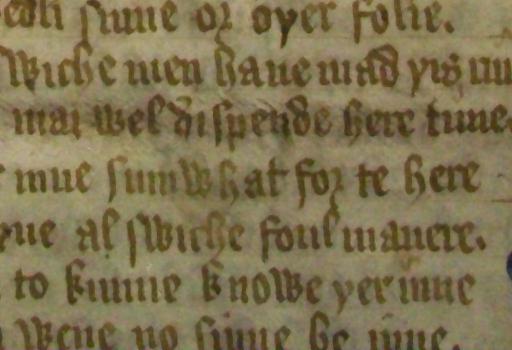 sinne or oyer folie.
swiche men haue mad yis
mai wel dispende here time
inne sumwhat for te here
al swiche foul manere.
to kunne knowe yer inne
wene no sinne be inne.